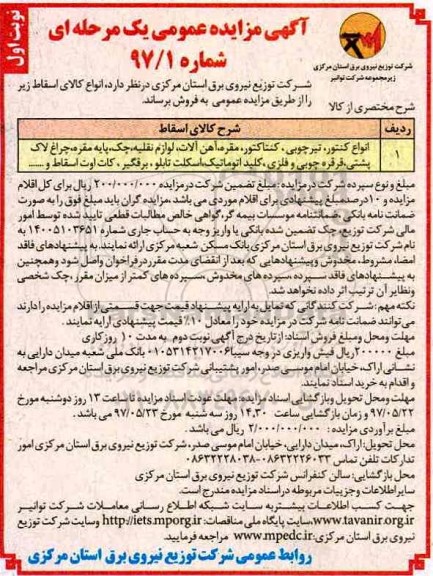 نوبت اول
آگهی مزایده عمومی یک مرحله ای
شماره ۹۷/۱
شرکت توزیع نیروی برق استان مرکزی
زیرمجموعه شرکت توانیر
شرکت توزیع نیروی برق استان مرکزی درنظر دارد، انواع کالای اسقاط زیر
را از طریق مزایده عمومی به فروش برساند.
شرح مختصری از کالا
ردیف شرح کالای اسقاط
۱ انواع کنتور، تیرچوبی، کنتاکتور، مقره، آهن آلات، لوازم نقلیه، جک، پایه مقره، چراغ لاک
پشتی، قرقره چوبی و فلزی، کلید اتوماتیک، اسکلت تابلو، برقگیر، کات اوت اسقاط و .......
مبلغ و نوع سپرده شرکت در مزایده: مبلغ تضمین شرکت در مزایده ۲۰۰/۰۰۰/۰۰۰ ریال برای کل اقلام
مزایده و ۱۰ درصد مبلغ پیشنهادی برای اقلام موردی می باشد. مزایده گران باید مبلغ فوق را به صورت
ضمانت نامه بانکی، ضمانتنامه موسسات بیمه گر، گواهی خالص مطالبات قطعی تایید شده توسط امور
مالی شرکت توزیع، چک تضمین شده بانکی یا واریز وجه به حساب جاری شماره ۱۴۰۰۵۱۰۳۶۵۱ به
نام شرکت توزیع نیروی برق استان مرکزی بانک مسکن شعبه مرکزی ارائه نمایند. به پیشنهادهای فاقد
امضا، مشروط، مخدوش و پیشنهادهایی که بعد از انقضای مدت مقرر در فراخوان واصل شود و همچنین
به پیشنهادهای فاقد سپرده، سپرده های مخدوش، سپرده های کمتر از میزان مقرر، چک شخصی
ونظایر آن ترتیب اثر داده نخواهد شد.
نکته مهم: شرکت کنندگانی که تمایل به ارایه پیشنهاد قیمت جهت قسمتی از اقلام مزایده را دارند
می توانند ضمانت نامه شرکت در مزایده خود را معادل ۱۰٪ قیمت پیشنهادی ارایه نمایند.
مهلت ومحل ومبلغ فروش اسناد: از تاریخ درج آگهی نوبت دوم به مدت ۱۰ روز کاری
مبلغ ۲۰۰۰۰۰ ریال فیش واریزی در وجه سیبا ۰۱۰۵۳۱۴۲۱۷۰۰۶ بانک ملی شعبه میدان دارایی به
نشانی اراک، خیابان امام موسی صدر، امور پشتیبانی شرکت توزیع نیروی برق استان مرکزی مراجعه
و اقدام به خرید اسناد نمایند.
مهلت ومحل تحویل وبازگشایی اسناد مزایده: مهلت عودت اسناد مزایده تا ساعت ۱۳ روز دوشنبه مورخ
۹۷/۰۵/۲۲ و زمان بازگشایی ساعت ۱۴.۳۰ روز سه شنبه مورخ ۹۷/۰۵/۲۳ می باشد.
مبلغ برآوردی مزایده: ۲/۰۰۰/۰۰۰/۰۰۰ ریال می باشد.
محل تحویل: اراک، میدان دارایی، خیابان امام موسی صدر، شرکت توزیع نیروی برق استان مرکزی امور
تدارکات تلفن تماس ۰۸۶۳۲۲۲۶۰۳۳-۰۸۶۳۲۲۲۸۰۳۸
محل بازگشایی: سالن کنفرانس شرکت توزیع نیروی برق استان مرکزی
سایراطلاعات وجزییات مربوطه در اسناد مزایده مندرج است.
جهت کسب اطلاعات بیشتر به سایت شبکه اطلاع رسانی معاملات شرکت توانیر
www.tavanir.org.ir، سایت پایگاه ملی مناقصات: http://iets.mporg.ir وسایت شرکت توزیع
نیروی برق استان مرکزی: www.mpedc.ir مراجعه فرمایید.
روابط عمومی شرکت توزیع نیروی برق استان مرکزی